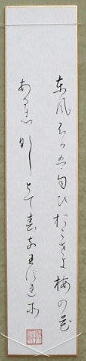 東風ふかば匂ひおこせよ梅の花
あるじなしとて春なわすれそ